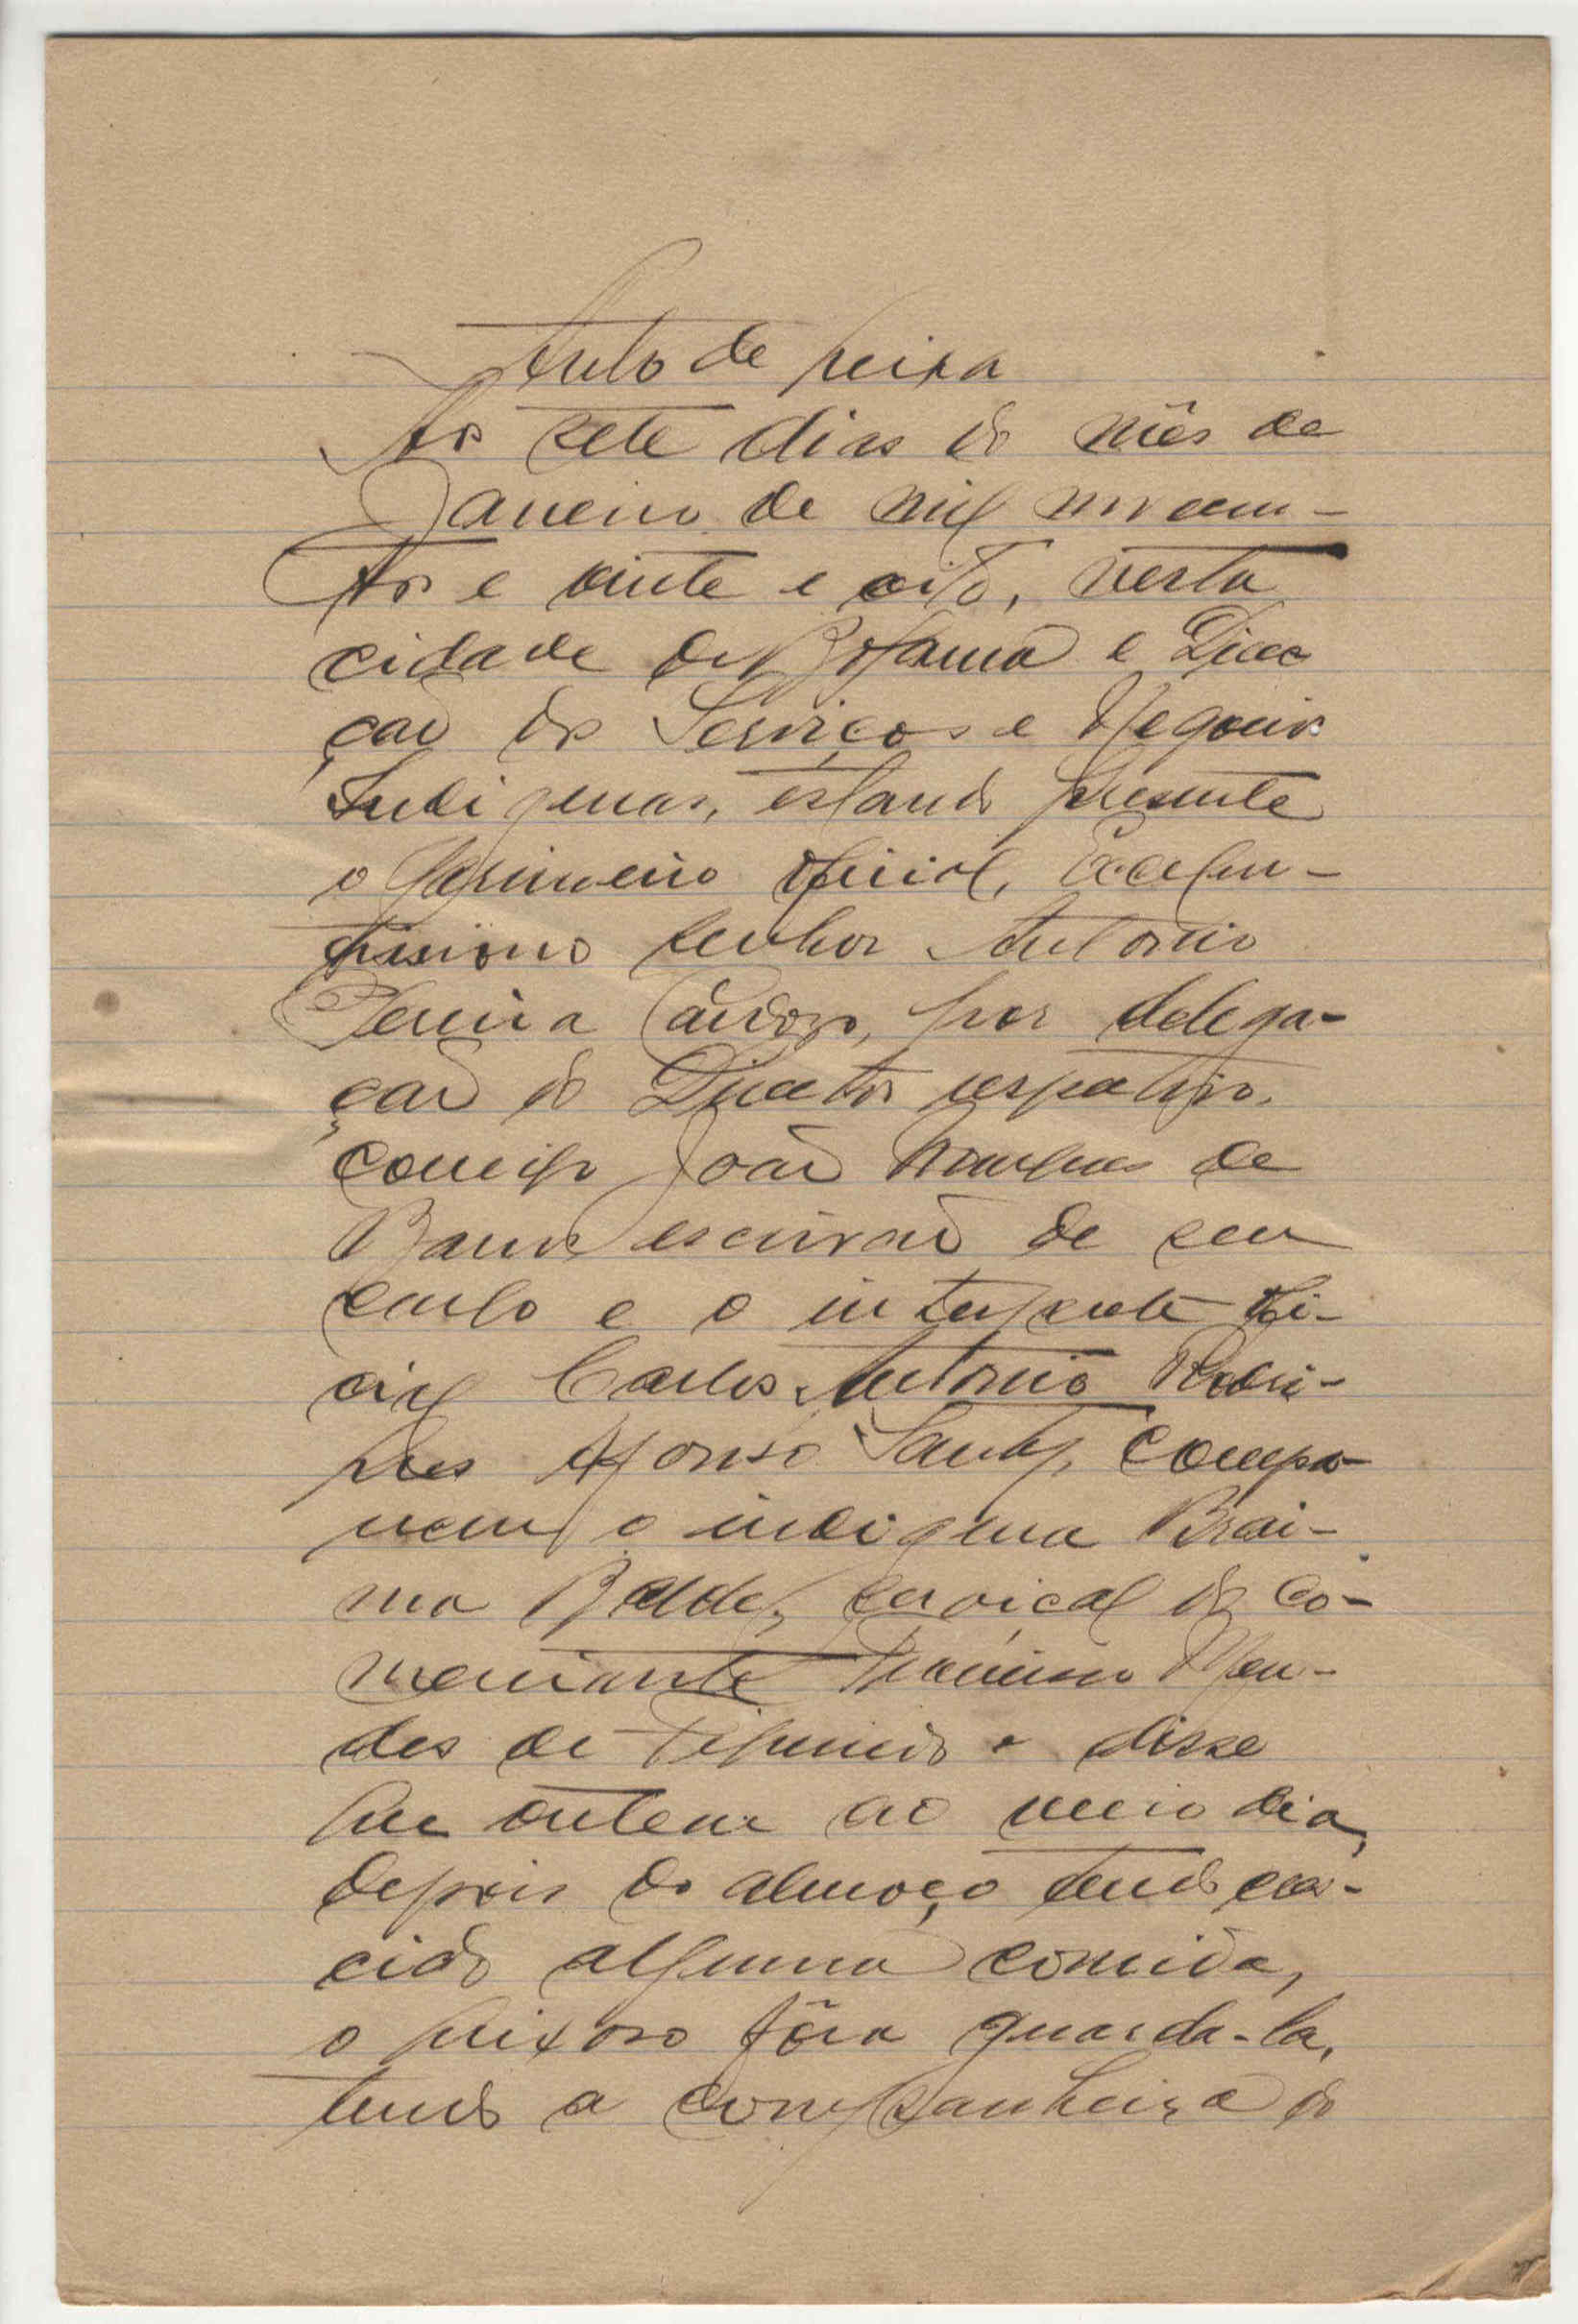 Auto de queixa
Aos sete dias do mês de
Janeiro de mil novecen-
tos e vinte e oito, nesta
cidade de Bolama e Direc
ção dos Serviços e Negocios
Indigenas, estando presente
o primeiro oficial, Excelen-
tissimo senhor Antonio
Pereira Cardoso, por delega-
ção do Director respectivo,
comigo João Marques de
Barros escrivão de seu
cargo e o interprete ofi-
cial Carlos Antonio Rodri-
gues Afonso Santy, compa-
receu o indigena Brai-
ma Baldé, serviçal do co-
merciante Men-
des de Figueiredo e disse
que ontem ao meio dia,
depois do almoço tendo cres-
cido alguma comida,
o queixoso fôra guarda-la,
tendo a companheira do